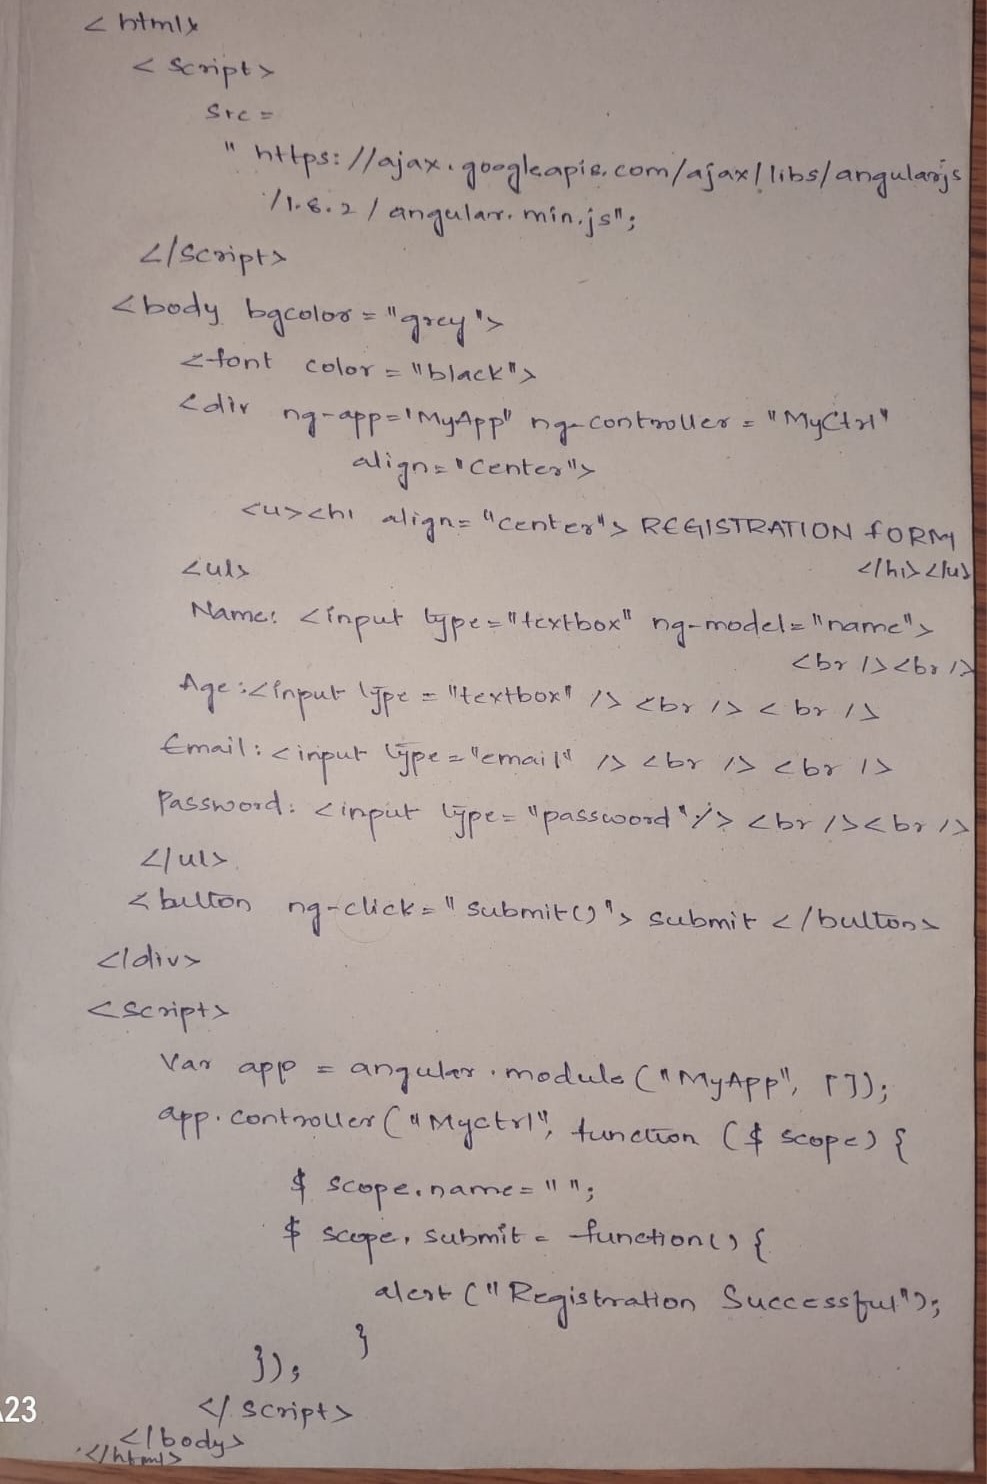 <html>
<script>
src =
"https://ajax.googleapis.com/ajax/libs/angularjs
/1.8.2/angular.min.js";
</script>
<body bgcolor="grey">
<font color="black">
<div ng-app='MyApp" ng-controller="MyCtrl"
align="center">
<u><h1 align="center">REGISTRATION FORM
</h1></u>
<ul>
Name: <input type="textbox" ng-model="name">
<br /><br />
Age:<input type="textbox" /><br /><br />
Email:<input type="email" /><br /><br />
Password: <input type="password"/><br /><br />
</ul>
<button ng-click="submit()">submit</button>
</div>
<script>
Var app = angular.module("MyApp", []);
app.controller("Myctrl", function ($ scope) {
$ scope.name="";
$ scope.submit = function() {
alert("Registration Successful");
}
});
</script>
</body>
</html>
A23